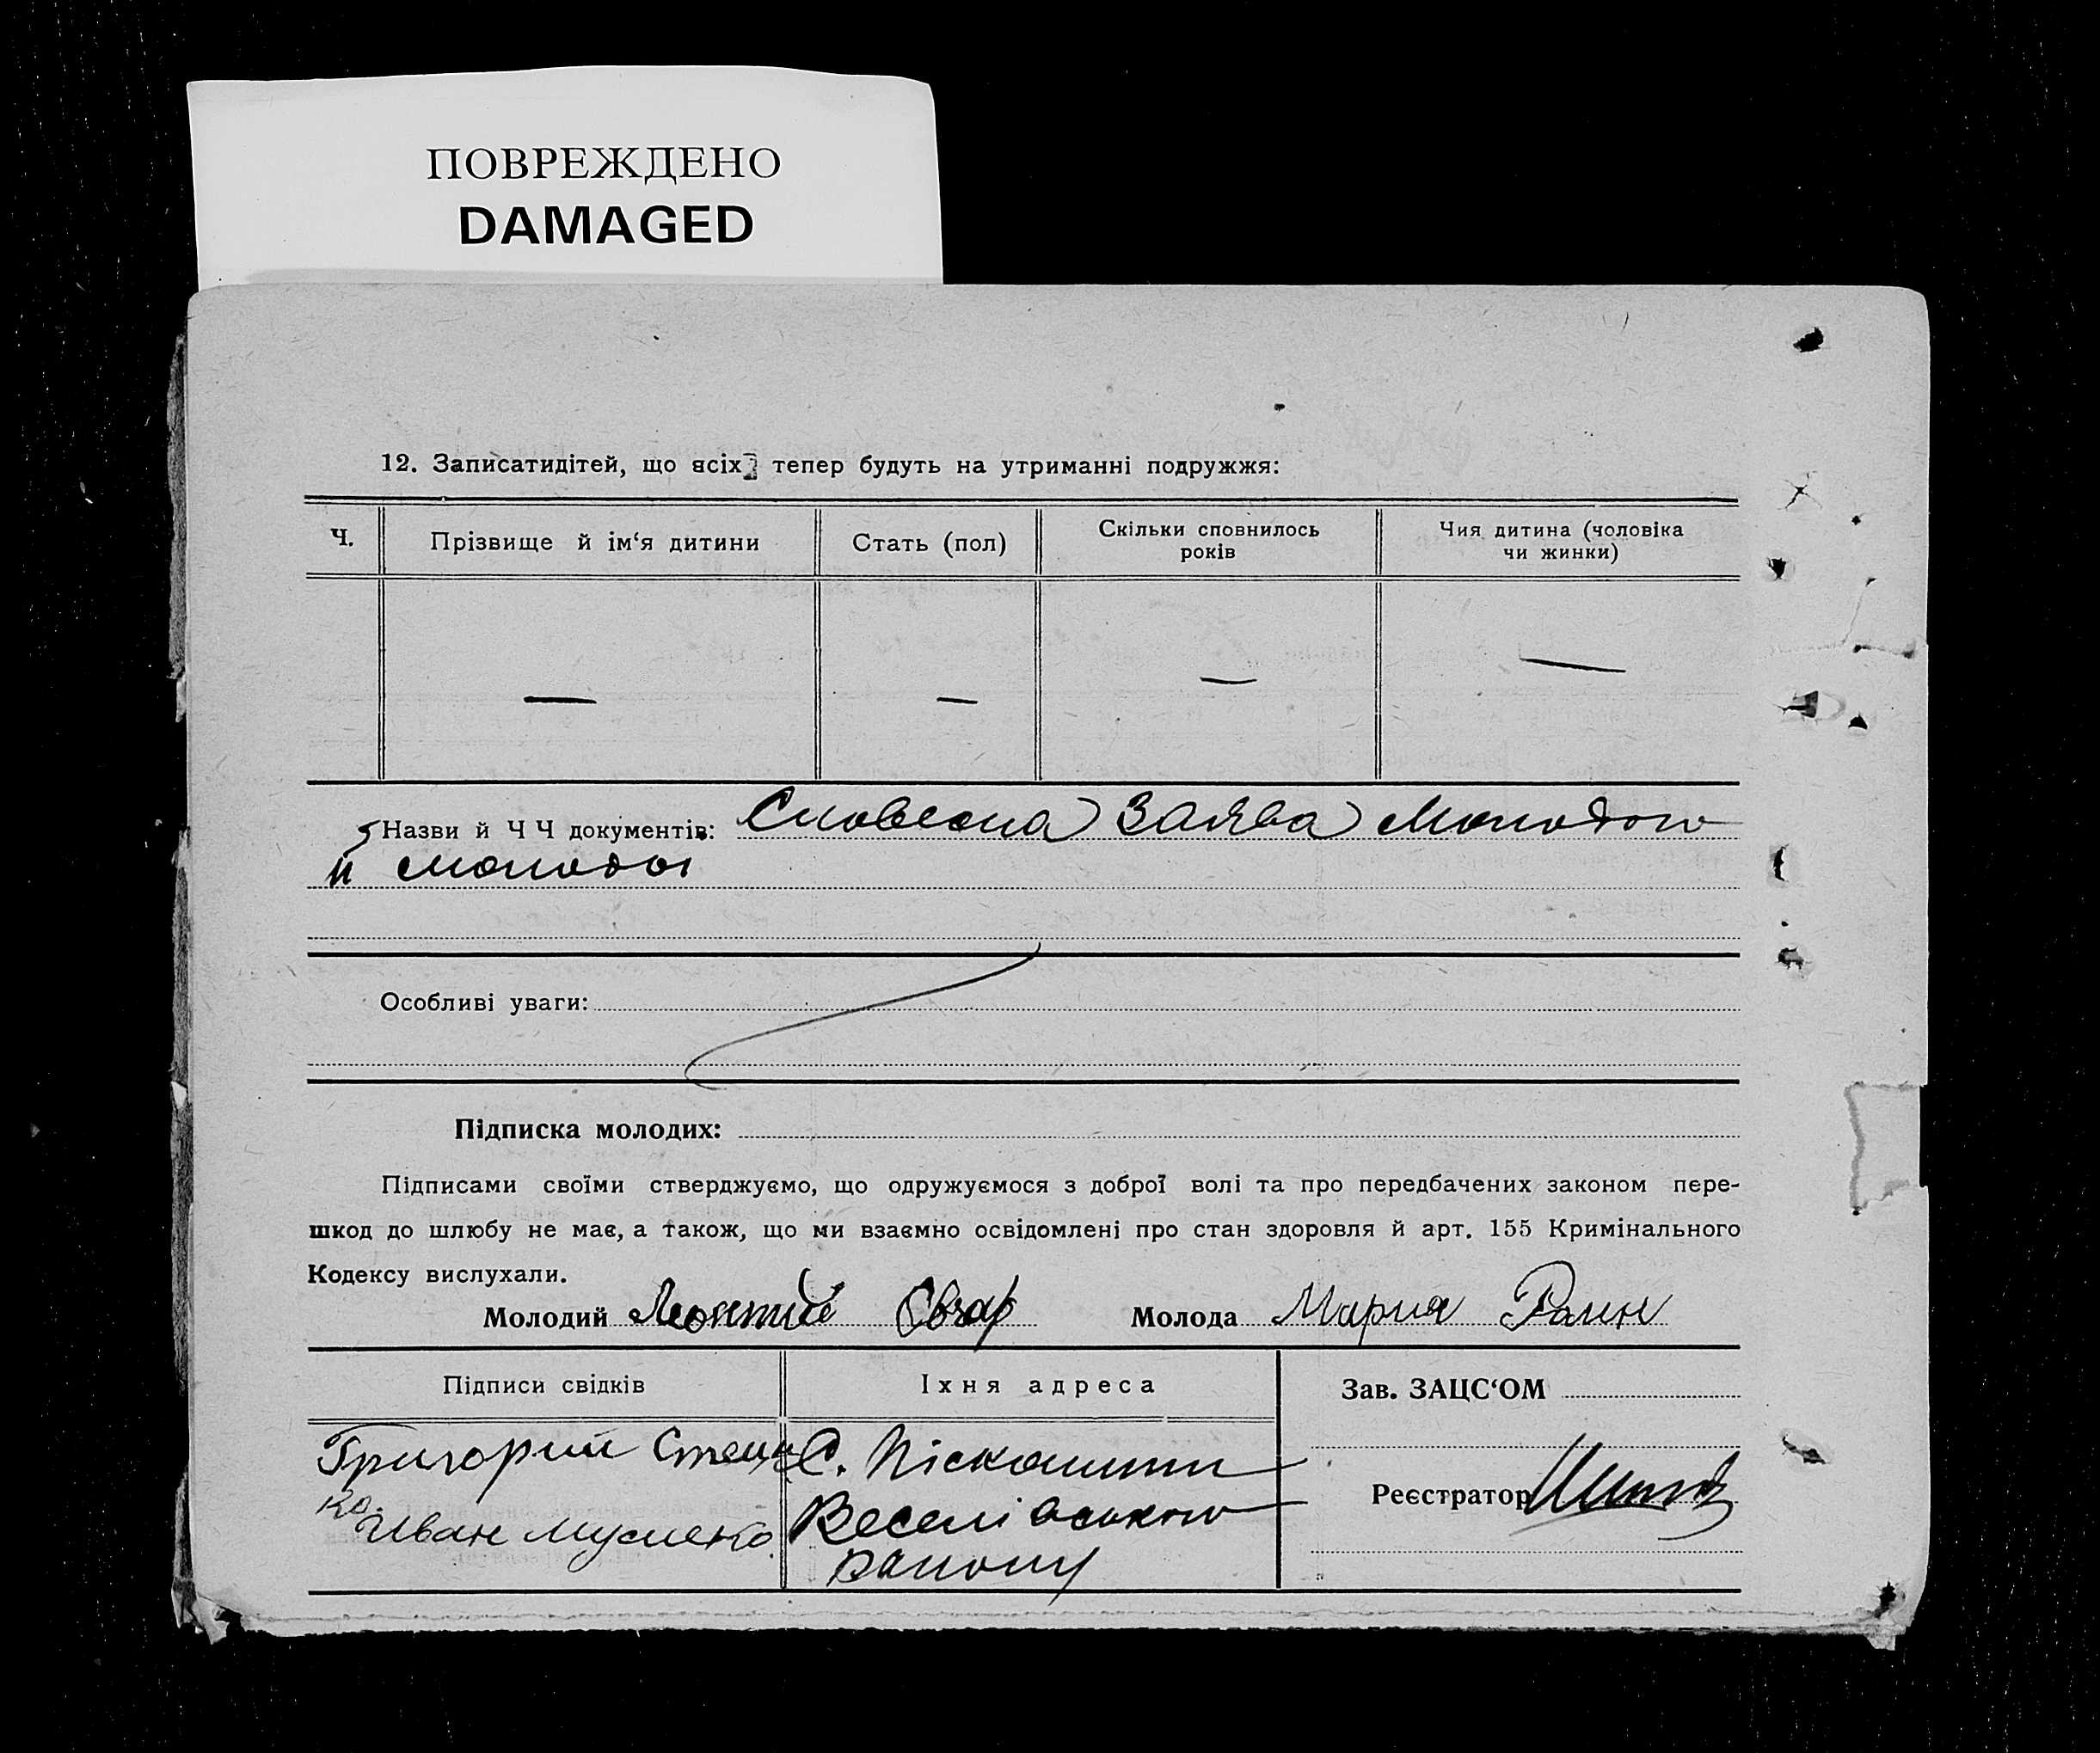 ПОВРЕЖДЕНО
DAMAGED
12. Записатидітей, що всіх тепер будуть на утриманні подружжя:
Ч.
Прізвище й ім‘я дитини
Стать (пол)
Скільки сповнилось
років
Чия дитина (чоловіка
чи жинки)
— — — —
Назви й Ч Ч документів: Словесна Заява Молодого
й молоды
Особливі уваги:
Підписка молодих:
Підписами своїми стверджуємо, що одружуємося з доброї волі та про передбачених законом пере-
шкод до шлюбу не має, а також, що ми взаємно освідомлені про стан здоровля й арт. 155 Кримінального
Кодексу вислухали.
Молодий Леонтий Овчар Молода Мария
Підписи свідків
Їхня адреса
Зав. ЗАЦС‘ОМ
Григорий Стецен
ко
Иван
С. Піскошины
Веселівського
району
Реєстратор